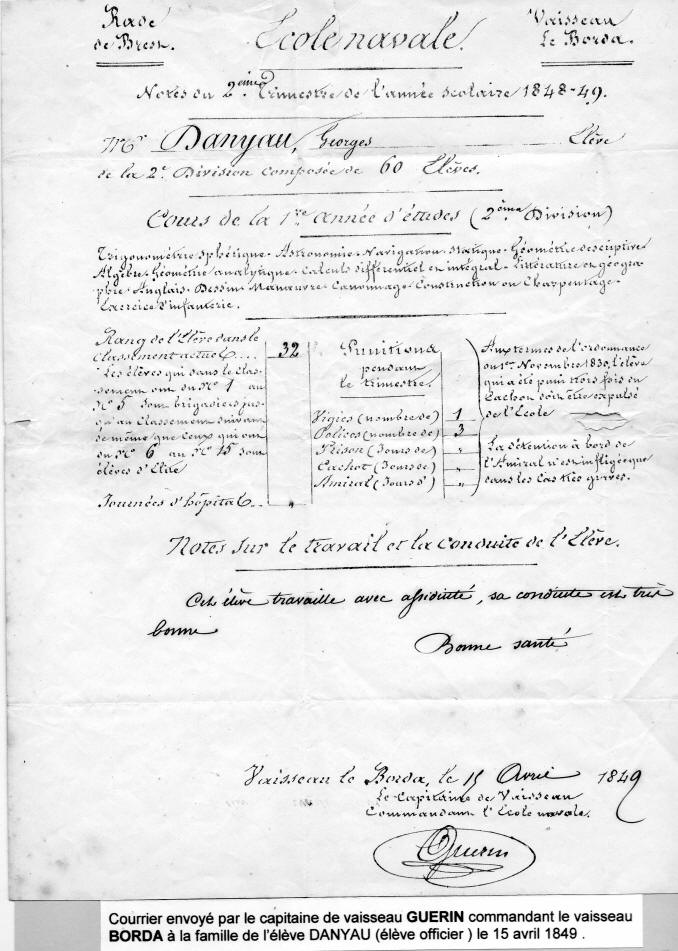 Rade
de Brest.
Ecole navale.
Vaisseau
Le Borda.
Notes du 2ème Trimestre de l'année scolaire 1848-49.
Mr Danyau, Georges Elève
de la 2e Division composée de 60 Elèves.
Cours de la 1re année d'études (2ème Division)
Trigonométrie sphérique - Astronomie - Navigation - Statique - Géométrie descriptive
Algèbre - Géométrie analytique - Calculs différentiel et intégral - Littérature et géogra-
phie - Anglais - Dessin - Manœuvre - Canonnage - Construction ou Charpentage -
Exercice d'infanterie.
Rang de l'Elève dans le
classement actuel.... 32
Les élèves qui dans le clas-
sement ont du No 1 au
No 5 sont brigadiers jus-
qu'au classement suivant
de même que ceux qui ont
du No 6 au No 15 sont
élèves d'Elite
Journées d'hôpital.. "
Punitions
pendant
le trimestre.
Vigies (nombre de) 1
Polices (nombre de) 3
Prison (Jours de) "
Cachot (Jours de) "
Amiral (Jours d') "
Aux termes de l'ordonnance
du 1er Novembre 1830, l'élève
qui a été puni trois fois du
Cachot doit être expulsé
de l'Ecole
La détention à bord de
l'Amiral n'est infligée que
dans les cas très graves.
Notes sur le travail et la conduite de l'Elève.
Cet élève travaille avec assiduité, sa conduite est très
bonne
Bonne santé
Vaisseau le Borda, le 15 Avril 1849
Le Capitaine de Vaisseau
Commandant l'Ecole navale.
Guerin
Courrier envoyé par le capitaine de vaisseau GUERIN commandant le vaisseau
BORDA à la famille de l'élève DANYAU (élève officier ) le 15 avril 1849 .